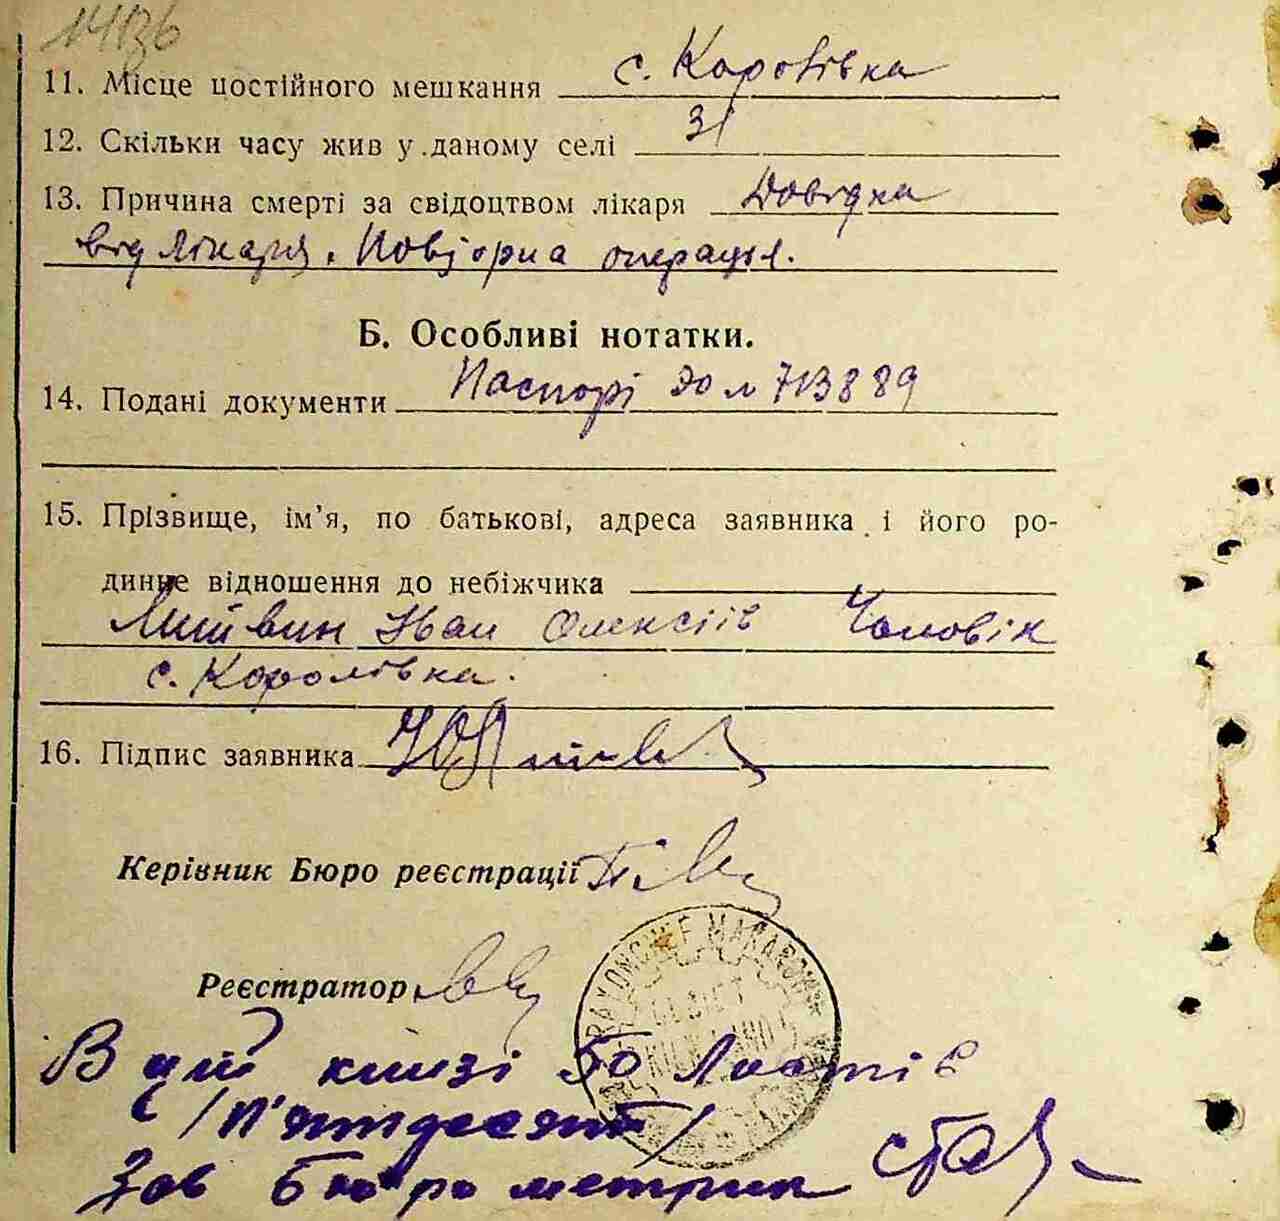 11. Місце постійного мешкання с. Королівка
12. Скільки часу жив у даному селі 31
13. Причина смерті за свідоцтвом лікаря Довідка
від лікаря. Повторна операція.
Б. Особливі нотатки.
14. Подані документи Паспорт 713889
15. Прізвище, ім'я, по батькові, адреса заявника і його ро-
динне відношення до небіжчика
Литвин Іван Олексіів Чоловік
с. Королівка.
16. Підпис заявника
Керівник Бюро реєстрації
Реєстратор
В цій книзі 50 Листів
/п'ятдесят/
Зав Бюро метрик